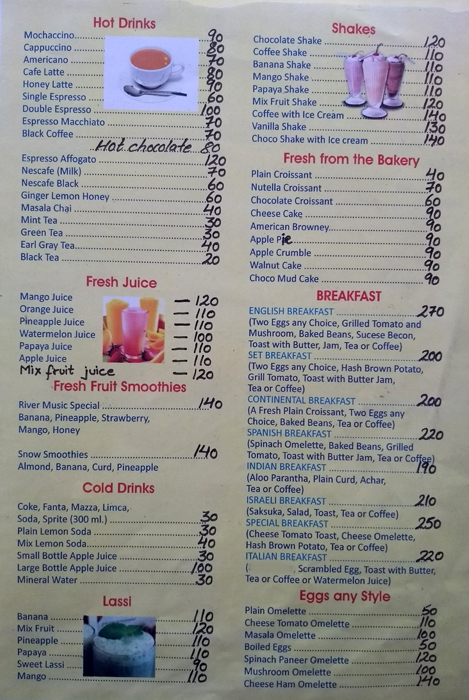 Hot Drinks
Mochaccino 90
Cappuccino 80
Americano 70
Cafe Latte 80
Honey Latte 90
Single Espresso 60
Double Espresso 100
Espresso Macchiato 70
Black Coffee 70
Hot chocolate 80
Espresso Affogato 120
Nescafe (Milk) 70
Nescafe Black 60
Ginger Lemon Honey 60
Masala Chai 40
Mint Tea 30
Green Tea 30
Earl Gray Tea 40
Black Tea 20
Fresh Juice
Mango Juice — 120
Orange Juice — 110
Pineapple Juice — 110
Watermelon Juice — 100
Papaya Juice — 110
Apple Juice — 110
Mix fruit juice — 120
Fresh Fruit Smoothies
River Music Special 140
Banana, Pineapple, Strawberry,
Mango, Honey
Snow Smoothies 140
Almond, Banana, Curd, Pineapple
Cold Drinks
Coke, Fanta, Mazza, Limca,
Soda, Sprite (300 ml.) 30
Plain Lemon Soda 30
Mix Lemon Soda 40
Small Bottle Apple Juice 30
Large Bottle Apple Juice 100
Mineral Water 30
Lassi
Banana 110
Mix Fruit 120
Pineapple 110
Papaya 110
Sweet Lassi 90
Mango 110
Shakes
Chocolate Shake 120
Coffee Shake 110
Banana Shake 110
Mango Shake 110
Papaya Shake 110
Mix Fruit Shake 120
Coffee with Ice Cream 140
Vanilla Shake 130
Choco Shake with Ice cream 140
Fresh from the Bakery
Plain Croissant 40
Nutella Croissant 70
Chocolate Croissant 60
Cheese Cake 90
American Browney 90
Apple Pie 90
Apple Crumble 90
Walnut Cake 90
Choco Mud Cake 90
BREAKFAST
ENGLISH BREAKFAST 270
(Two Eggs any Choice, Grilled Tomato and
Mushroom, Baked Beans, Sucese Becon,
Toast with Butter, Jam, Tea or Coffee)
SET BREAKFAST 200
(Two Eggs any Choice, Hash Brown Potato,
Grill Tomato, Toast with Butter Jam,
Tea or Coffee)
CONTINENTAL BREAKFAST 200
(A Fresh Plain Croissant, Two Eggs any
Choice, Baked Beans, Tea or Coffee)
SPANISH BREAKFAST 220
(Spinach Omelette, Baked Beans, Grilled
Tomato, Toast with Butter Jam, Tea or Coffee)
INDIAN BREAKFAST 190
(Aloo Parantha, Plain Curd, Achar,
Tea or Coffee)
ISRAELI BREAKFAST 210
(Saksuka, Salad, Toast, Tea or Coffee)
SPECIAL BREAKFAST 250
(Cheese Tomato Toast, Cheese Omelette,
Hash Brown Potato, Tea or Coffee)
ITALIAN BREAKFAST 220
( , Scrambled Egg, Toast with Butter,
Tea or Coffee or Watermelon Juice)
Eggs any Style
Plain Omelette 50
Cheese Tomato Omelette 110
Masala Omelette 100
Boiled Eggs 50
Spinach Paneer Omelette 120
Mushroom Omelette 120
Cheese Ham Omelette 140